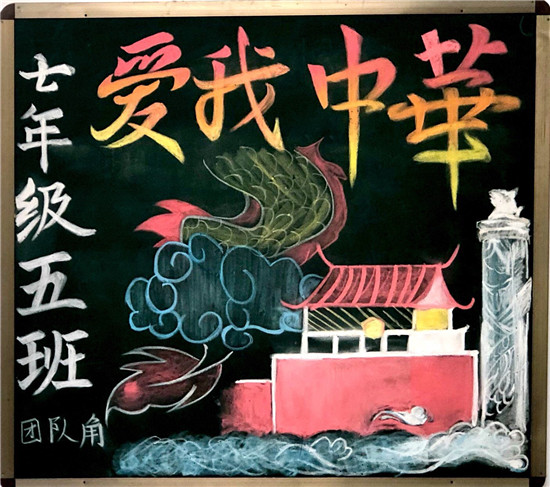 爱我中華
七年级五班
团队角